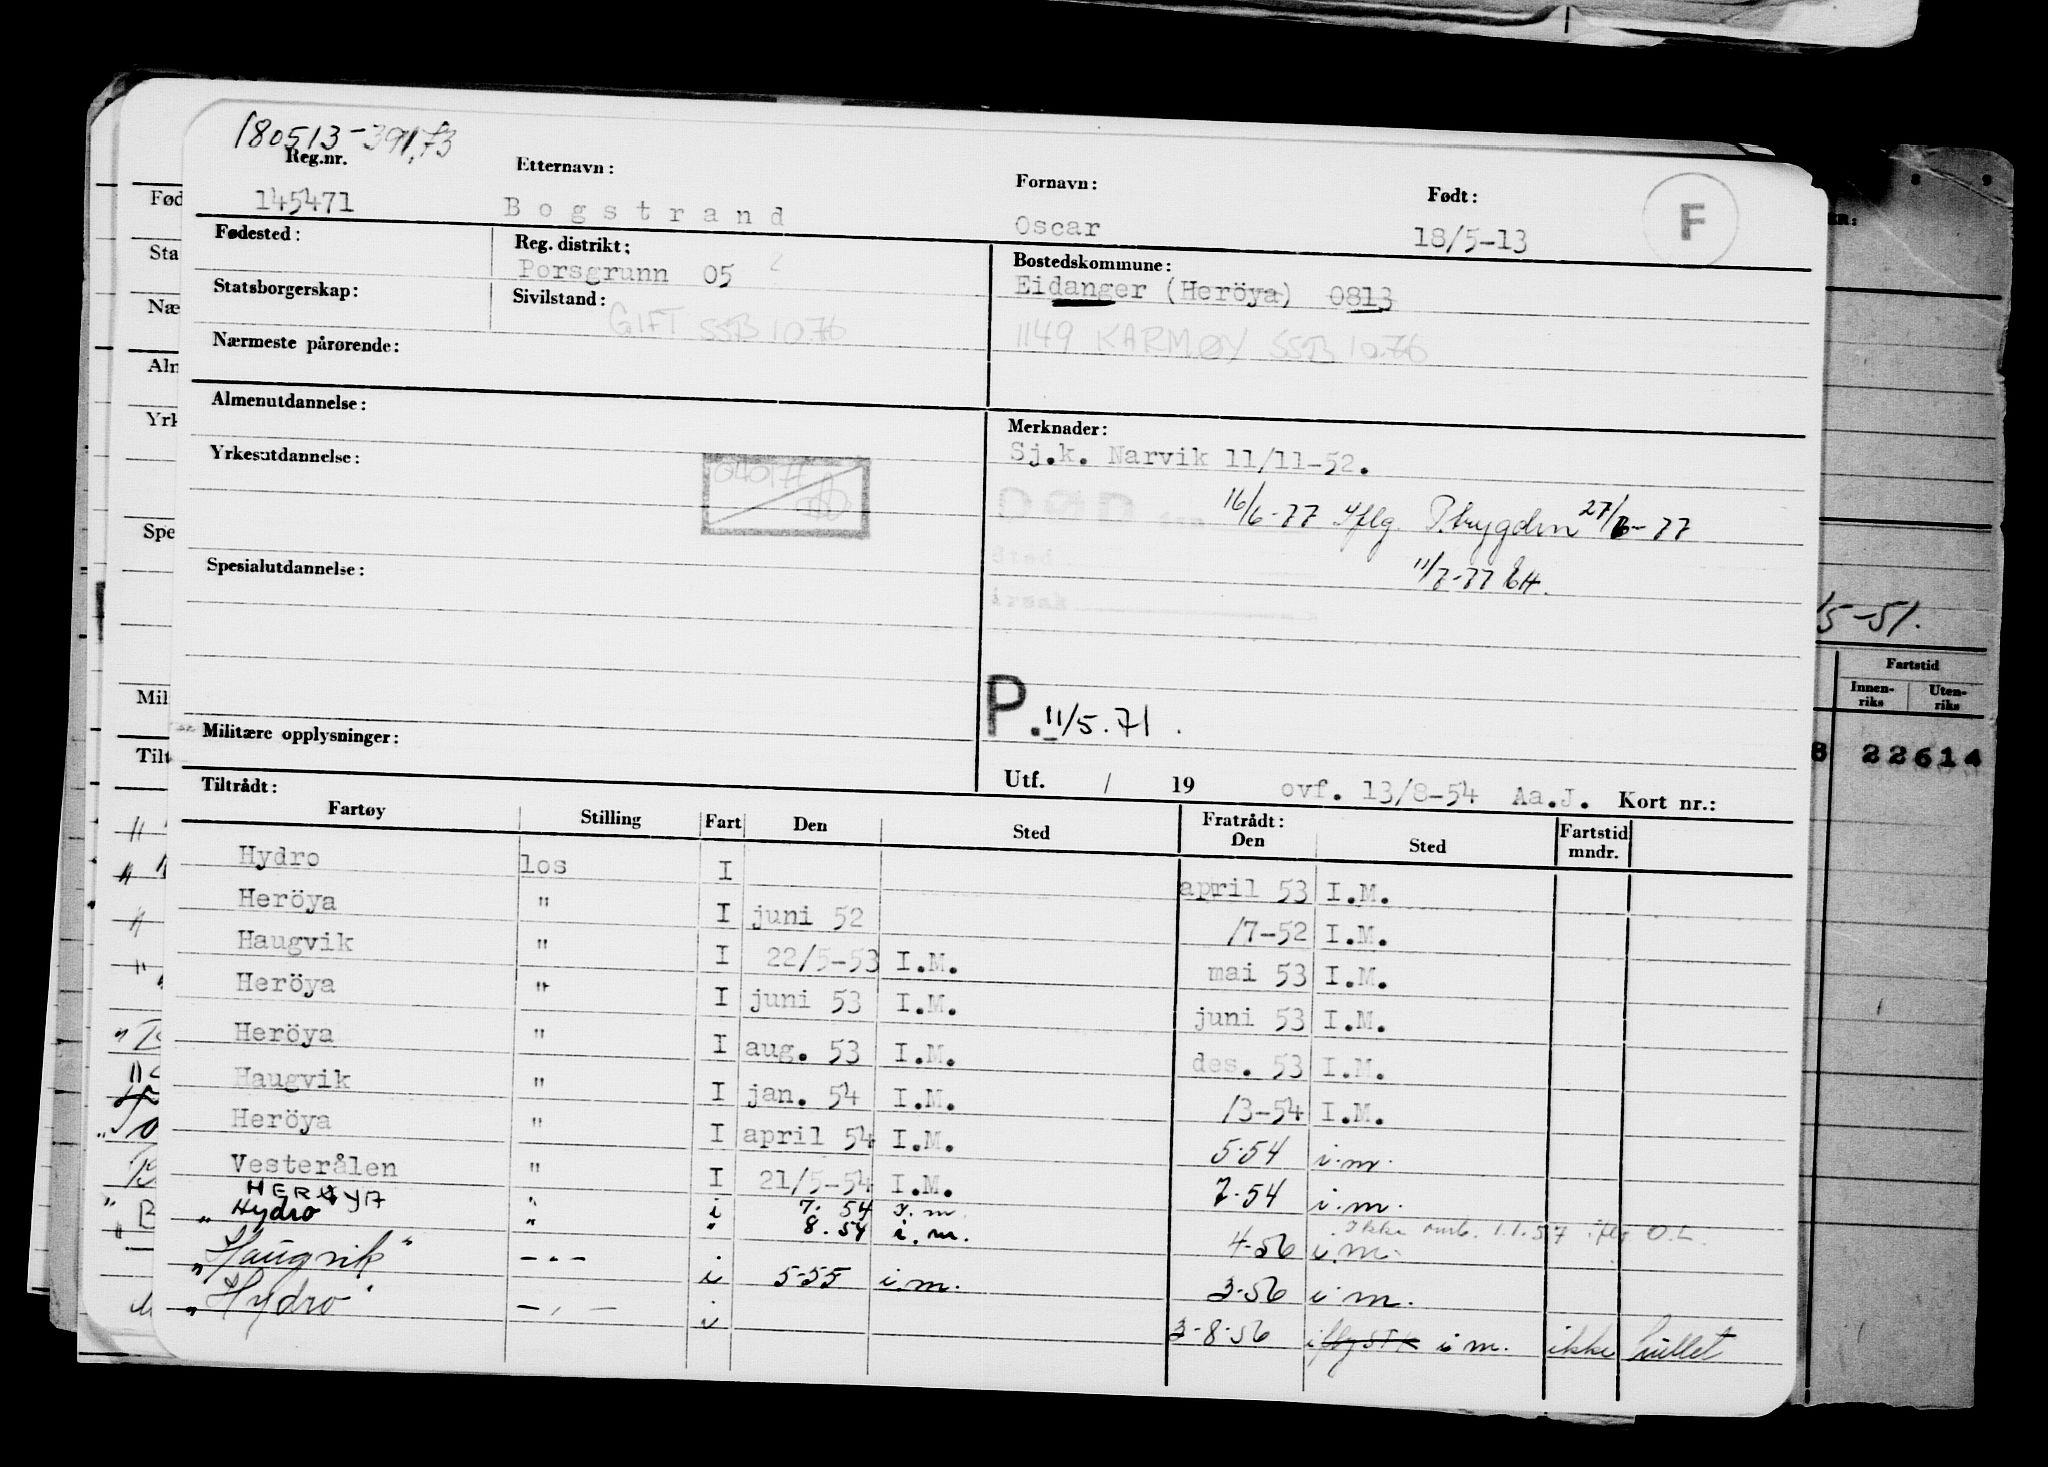 180513-39173
Reg.nr. Etternavn: Fornavn: Født:
145471 Bogstrand Oscar 18/5-13 F
Fødested: Reg. distrikt: Bostedskommune:
Porsgrunn 05 Eidanger (Heröya) 0813
Statsborgerskap: Sivilstand:
GIFT SSB 10.76 1149 KARMØY SSB 10.76
Nærmeste pårørende:
Almenutdannelse: Merknader:
Sj.k. Narvik 11/11-52.
Yrkesutdannelse:
DØD den 16/6-77 Iflg. P.trygden 27/6-77
Sted
11/7-77
årsak
Spesialutdannelse:
P. 11/5.71.
Militære opplysninger:
Utf. / 19 ovf. 13/8-54 Aa.J. Kort nr.:
Tiltrådt: Fratrådt:
Fartøy Stilling Fart Den Sted Den Sted Fartstid mndr.
Hydro los I april 53 I.M.
Heröya " I juni 52 /7-52 I.M.
Haugvik " I 22/5-53 I.M. mai 53 I.M.
Heröya " I juni 53 I.M. juni 53 I.M.
Heröya " I aug. 53 I.M. des. 53 I.M.
Haugvik " I jan. 54 I.M. /3-54 I.M.
Heröya " I april 54 I.M. 5-54 i.m.
Vesterålen " I 21/5-54 I.M. 7-54 i.m.
HERØYA " i 7. 54 I.m. Ikke omb. 1.1.57 iflg O.L.
" Hydro " " 8.54 i.m. 4-56 i.m.
"Haugvik" -"- i 5-55 i.m. 3-56 i.m.
"Hydro" -"- i 3-8-56 iflg STK i m. ikke hullet
Fød
Sta
Næ
Aln
Yrk
Spe
Mil
Tilt
15-51.
Fartstid
Innen-riks Uten-riks
8 22614